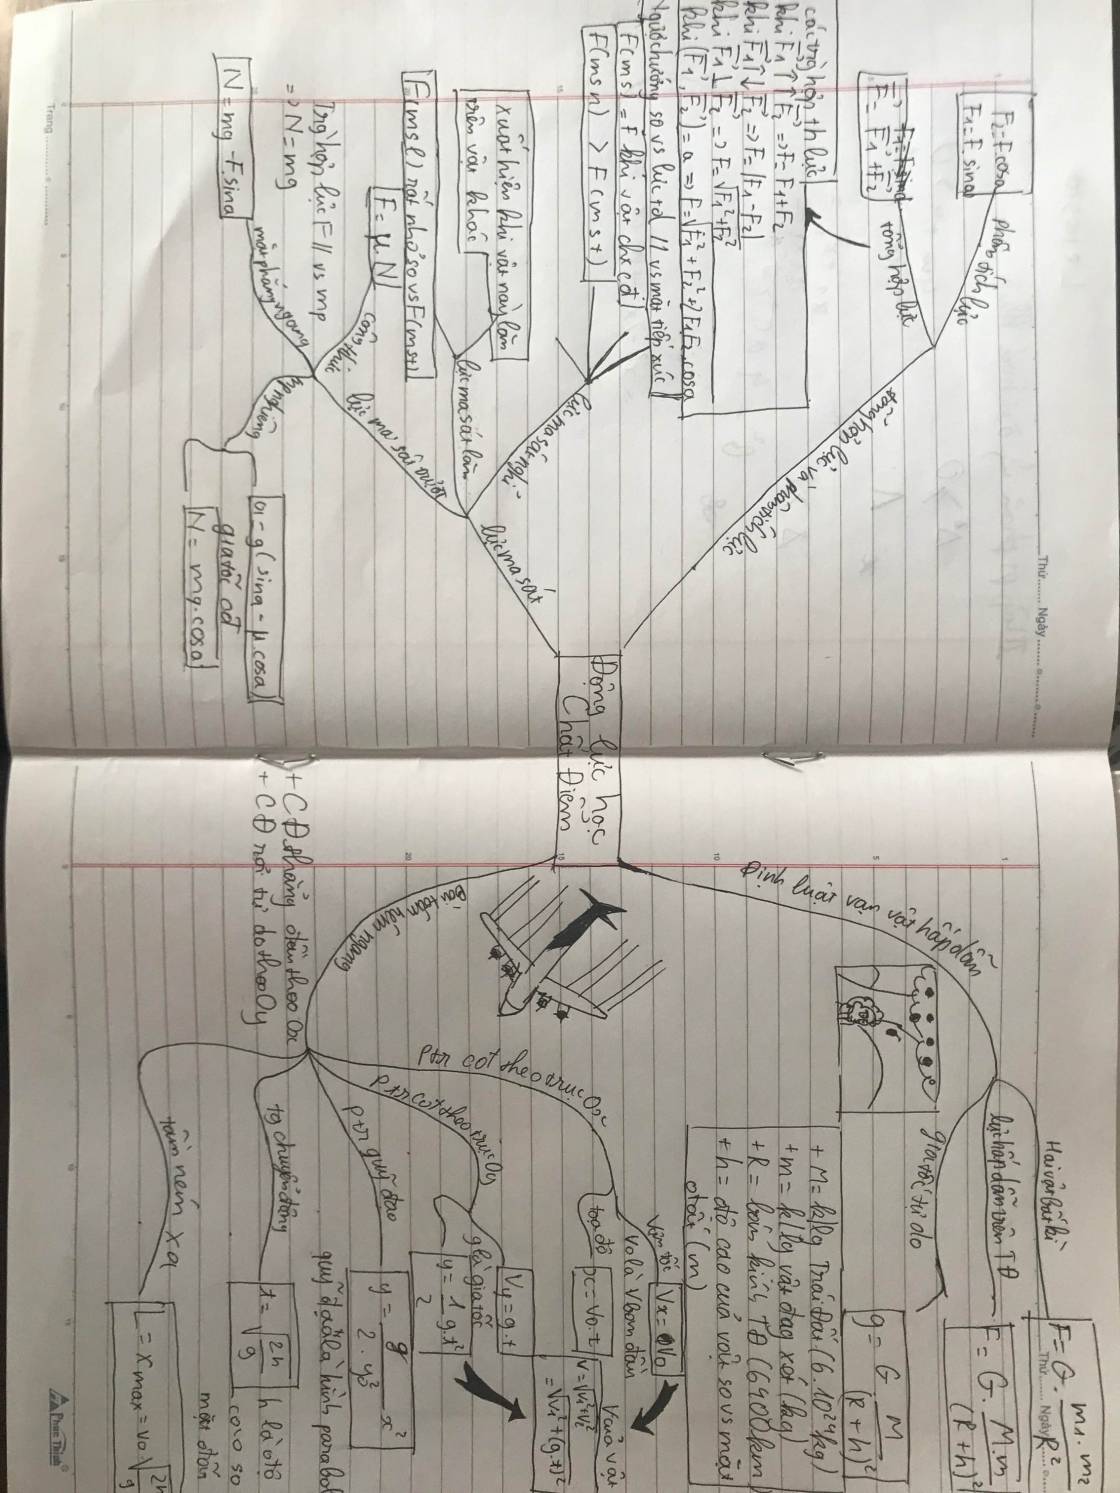 Động lực học
Chất Điểm
tổng hợp lực và phân tích lực
phân tích lực
F₂=F.cosa
F₁=F.sina
tổng hợp lực
F⃗ = F⃗₁+F⃗₂
các trg hợp th lực
khi F⃗₁ ↑↑ F⃗₂ => F = F₁+F₂
khi F⃗₁ ↑↓ F⃗₂ => F = |F₁-F₂|
khi F⃗₁ ⊥ F⃗₂ => F=√F₁²+F₂²
khi (F⃗₁, F⃗₂) = a => F=√F₁²+F₂²+2F₁F₂.cosa
lực ma sát
lực ma sát nghỉ
Ngược hướng so vs lực td // vs mặt tiếp xúc
F(ms) = F khi vật chưa cđ
F(msn) > F(mst)
lực ma sát lăn
xuất hiện khi vật này lăn
trên vật khác
F(msl) rất nhỏ so vs F(mst)
lực ma sát trượt
công thức
F=μ.N
mặt phẳng ngang
Trg hợp lực F // vs mp
=> N = mg
N = mg - F.sina
mp nghiêng
a = g(sina - μ.cosa)
gia tốc cđ
N = mg.cosa
Định luật vạn vật hấp dẫn
Hai vật bất kì
F=G. m₁.m₂
R²
lực hấp dẫn trên TĐ
F = G. M.m
(R+h)²
gia tốc tự do
g = G M
(R+h)²
+ M= k/lg Trái đất (6.10²⁴kg)
+ m= k/lg vật đag xét (kg)
+ R = bán kính TĐ (6400km
+ h = độ cao của vật so vs mặt
đất (m)
Bài toán ném ngang
+ CĐ thẳng đều theo Ox
+ CĐ rơi tự do theo Oy
ptr cđt theo trục Ox
vận tốc
Vx = V₀
V₀ là V ban đầu
toạ độ
x = V₀.t
V của vật
V=√Vx²+Vy²
=√V₀²+(g.t)²
ptr cđt theo trục Oy
Vy=g.t
g là gia tốc
y = 1 g.t²
2
ptr quỹ đạo
y = g x²
2.V₀²
quỹ đạo là hình parabol
tg chuyển động
t = √2h
g
h là độ
cao so
mặt đất
tầm ném xa
L = xmax = V₀ √2h
g
Trang
Thứ Ngày
Thứ Ngày
Phúc Thịnh
1
5
10
15
20